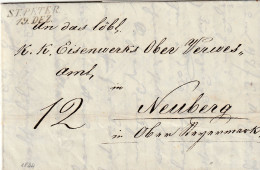 ST. PETER
19. DEZ.
An das löbl.
K. K. Eisenwerks Ober Verwes-
amt,
in
12
Neuberg
in Ober Steyermark